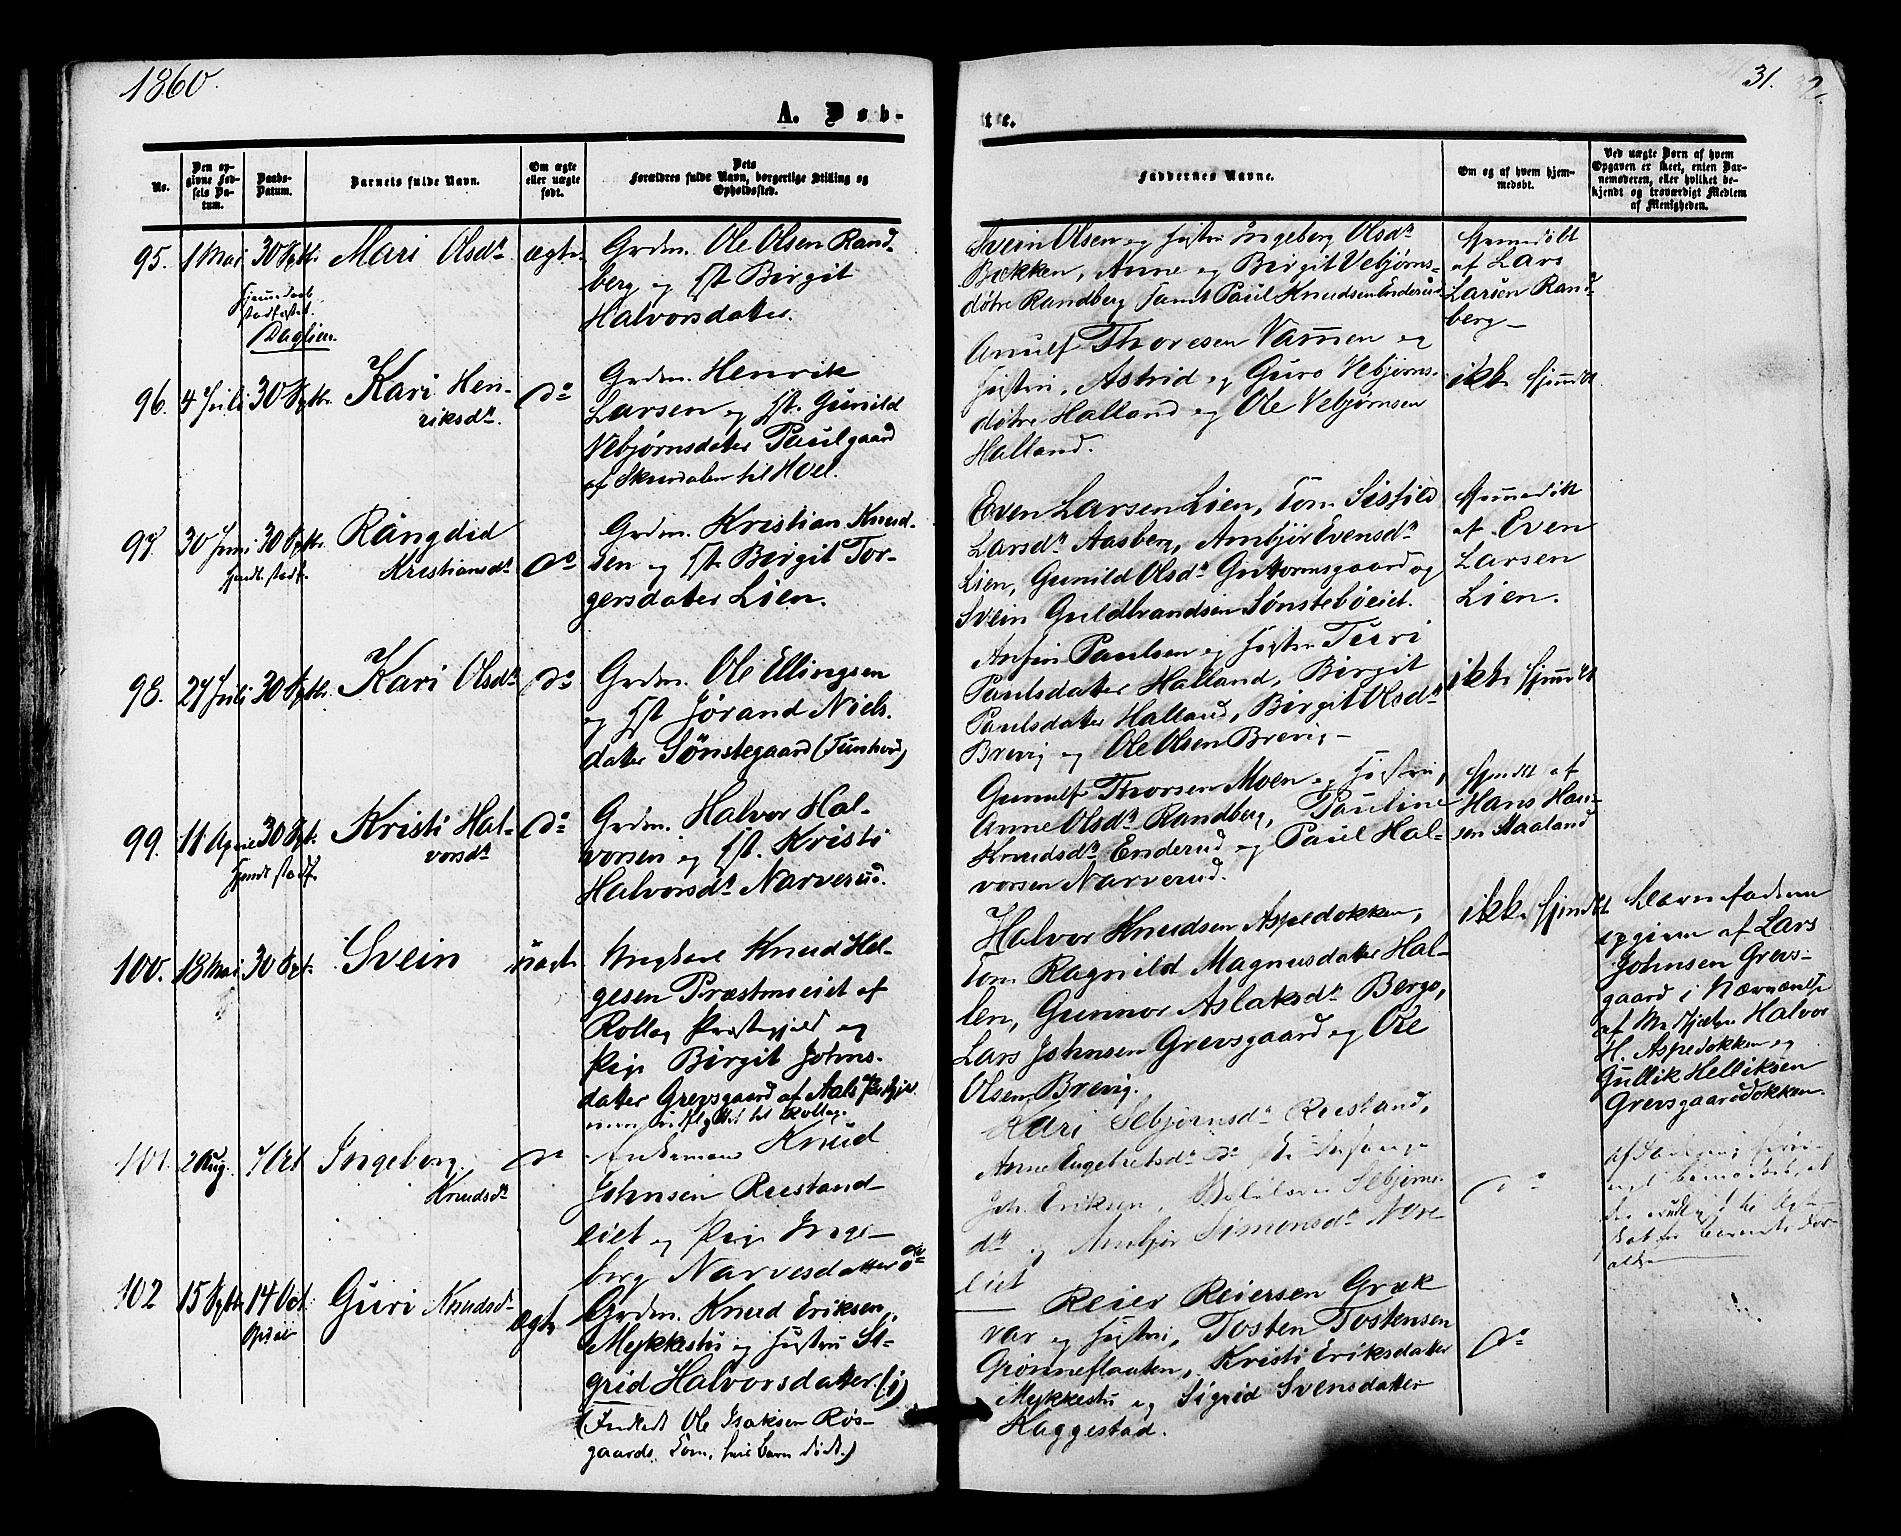 1860.
31.
A. Døb-
te.
No.
Den op-
givne Fød-
sels Da-
tum.
Daabs-
Datum.
Barnets fulde Navn.
Om ægte
eller uægte
født.
Dets
Forældres fulde Navn, borgerlige Stilling og
Opholdssted.
Faddernes Navne.
Om og af hvem hjem-
medøbt.
Ved uægte Børn af hvem
Opgaven er skeet, enten Bar-
nemoderen, eller hvilket be-
kjendt og troværdigt Medlem
af Menigheden.
95. 1 Mai 30 Sptbr. Mari Olsdr ægte
Hjemmedaab
stadfæstet.
Daglien.
Grdm. Ole Olsen Rand-
berg og Hst Birgit
Halvorsdater.
Svein Olsen og Hustru Ingeberg Olsdr
Bækken, Anne og Birgit Vebjørns-
døtre Randberg samt Paul Knudsen Enderud
Hjemmedøbt
af Lars
Larsen Rand-
berg
96. 4 Juli 30 Sptbr. Kari Hen-
riksdr. do
Grdm. Henrik
Larsen og Hst. Gunild
Vebjørnsdater Paulgaard
af Skurdalen til Hoel.
Thoresen og
Hustru, Astrid og Guro Vebjørns-
døtre Halland og Ole Vebjørnsen
Halland.
ikke hjemdt
97. 30 Juni 30 Sptbr. Rångdid
Kristiansdr do
hjmdb. stadf.
Grdm. Kristian Knud-
sen og Hst. Birgit Tor-
gersdater Lien.
Even Larsen Lien, Tom.
Larsdr Aasberg, Ambjør Evensdr
Lien, Gunild Olsdr Guttormsgaard og
Svein Guldbrandsen Sønstebøeiet.
Hjemmedøbt
af Even
Larsen
Lien.
98. 27 Juli 30 Sptbr. Kari Olsdr do
Grdm. Ole Ellingsen
og Hst Jørand Niels-
dater Sønstegaard (Tunhovd)
Anfin Paulsen og Hustru Turi
Paulsdater Halland, Birgit
Paulsdater Halland, Birgit Olsdr
Brevig og Ole Olsen Brevig
ikke hjemdt
99. 11 April 30 Spt. Kristi Hal-
vorsdr do
hjemdt stadf.
Grdm. Halvor Hal-
vorsen og Hst. Kristi
Halvorsdr Narverud.
Gunulf Thorsen Moen og Hustru,
Anne Olsdr Randberg, Pauline
Knudsdr Enderud og Paul Hal-
vorsen Narverud.
hjemdt af
Hans Han-
sen Haaland
100. 18 Mai 30 Spt. Svein uægte
Ungkarl Knud Hel-
gesen Præstmoeiet af
Rollag Præstegjeld og
Pige Birgit Johns-
dater Grevsgaard af Aals Præstgjeld
til Rollag.
Halvor Knudsen Aspedokken,
Tom. Ragnild Magnusdater Hal-
len, Gunnor Aslaksdr Bergo,
Lars Johnsen Grevsgaard og Ole
Olsen Brevig.
ikke hjemdt
Barnefaderen
opgiven af Lars
Johnsen Grevs-
gaard i Nærværelse
af Halvor
H. Aspedokken og
Gullik Helliksen
Grevsgaardokken.
101. 2 Aug. 7 Oct Ingeberg
Knudsdr do
Enkemand Knud
Johnsen Ruestand-
eiet og Pige Inge-
berg Narvesdatter do
Kari Sebjørnsdr Ruestand,
Anne Engebretsdr do
Joh. Eriksen, Sebjørns-
dr og Ambjør Simonsdr Nore-
eiet
do
102 15 Sptbr 14 Oct. Guri Knudsdr ægte
Opdal
Grdm. Knud Eriksen
Mykkestu og Hustru Si-
grid Halvorsdatter. (i)
(Ole Isaksen Røs-
gaards Barn død.)
Reier Reiersen Græk-
var og Hustru, Tosten Tostensen
Grønneflaaten, Kristi Eriksdatter
Mykkestu og Sigrid Svensdatter
Haggestad.
do